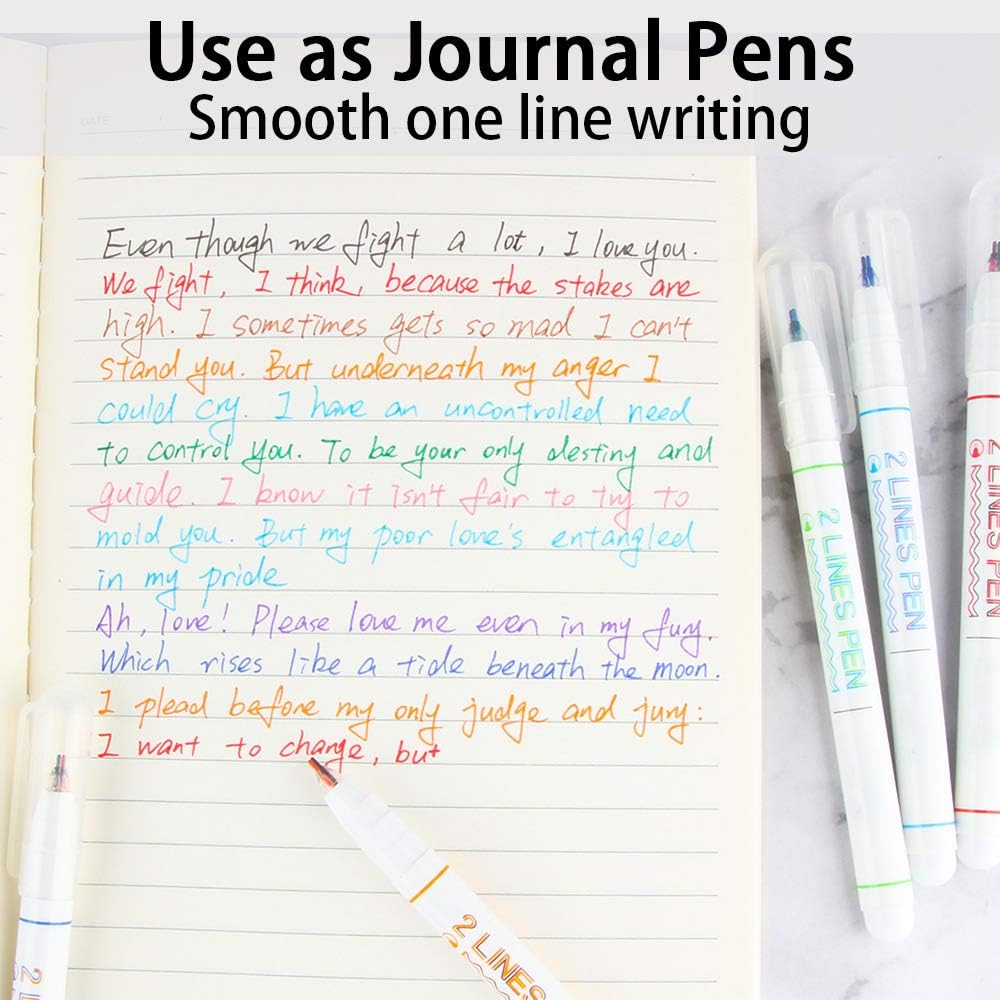 Use as Journal Pens
Smooth one line writing
DATE
Even though we fight a lot, I love you.
We fight, I think, because the stakes are
high. I sometimes gets so mad I can't
stand you. But underneath my anger I
could cry. I have an uncontrolled need
to control you. To be your only desting and
guide. I know it isn't fair to try to
mold you. But my poor love's entangled
in my pride
Ah, love! Please love me even in my fury.
Which rises like a tide beneath the moon.
I plead before my only judge and jury:
I want to change, but
2 LINES PEN
2 LINES PEN
2 LINES PEN
2 LINES
2 L